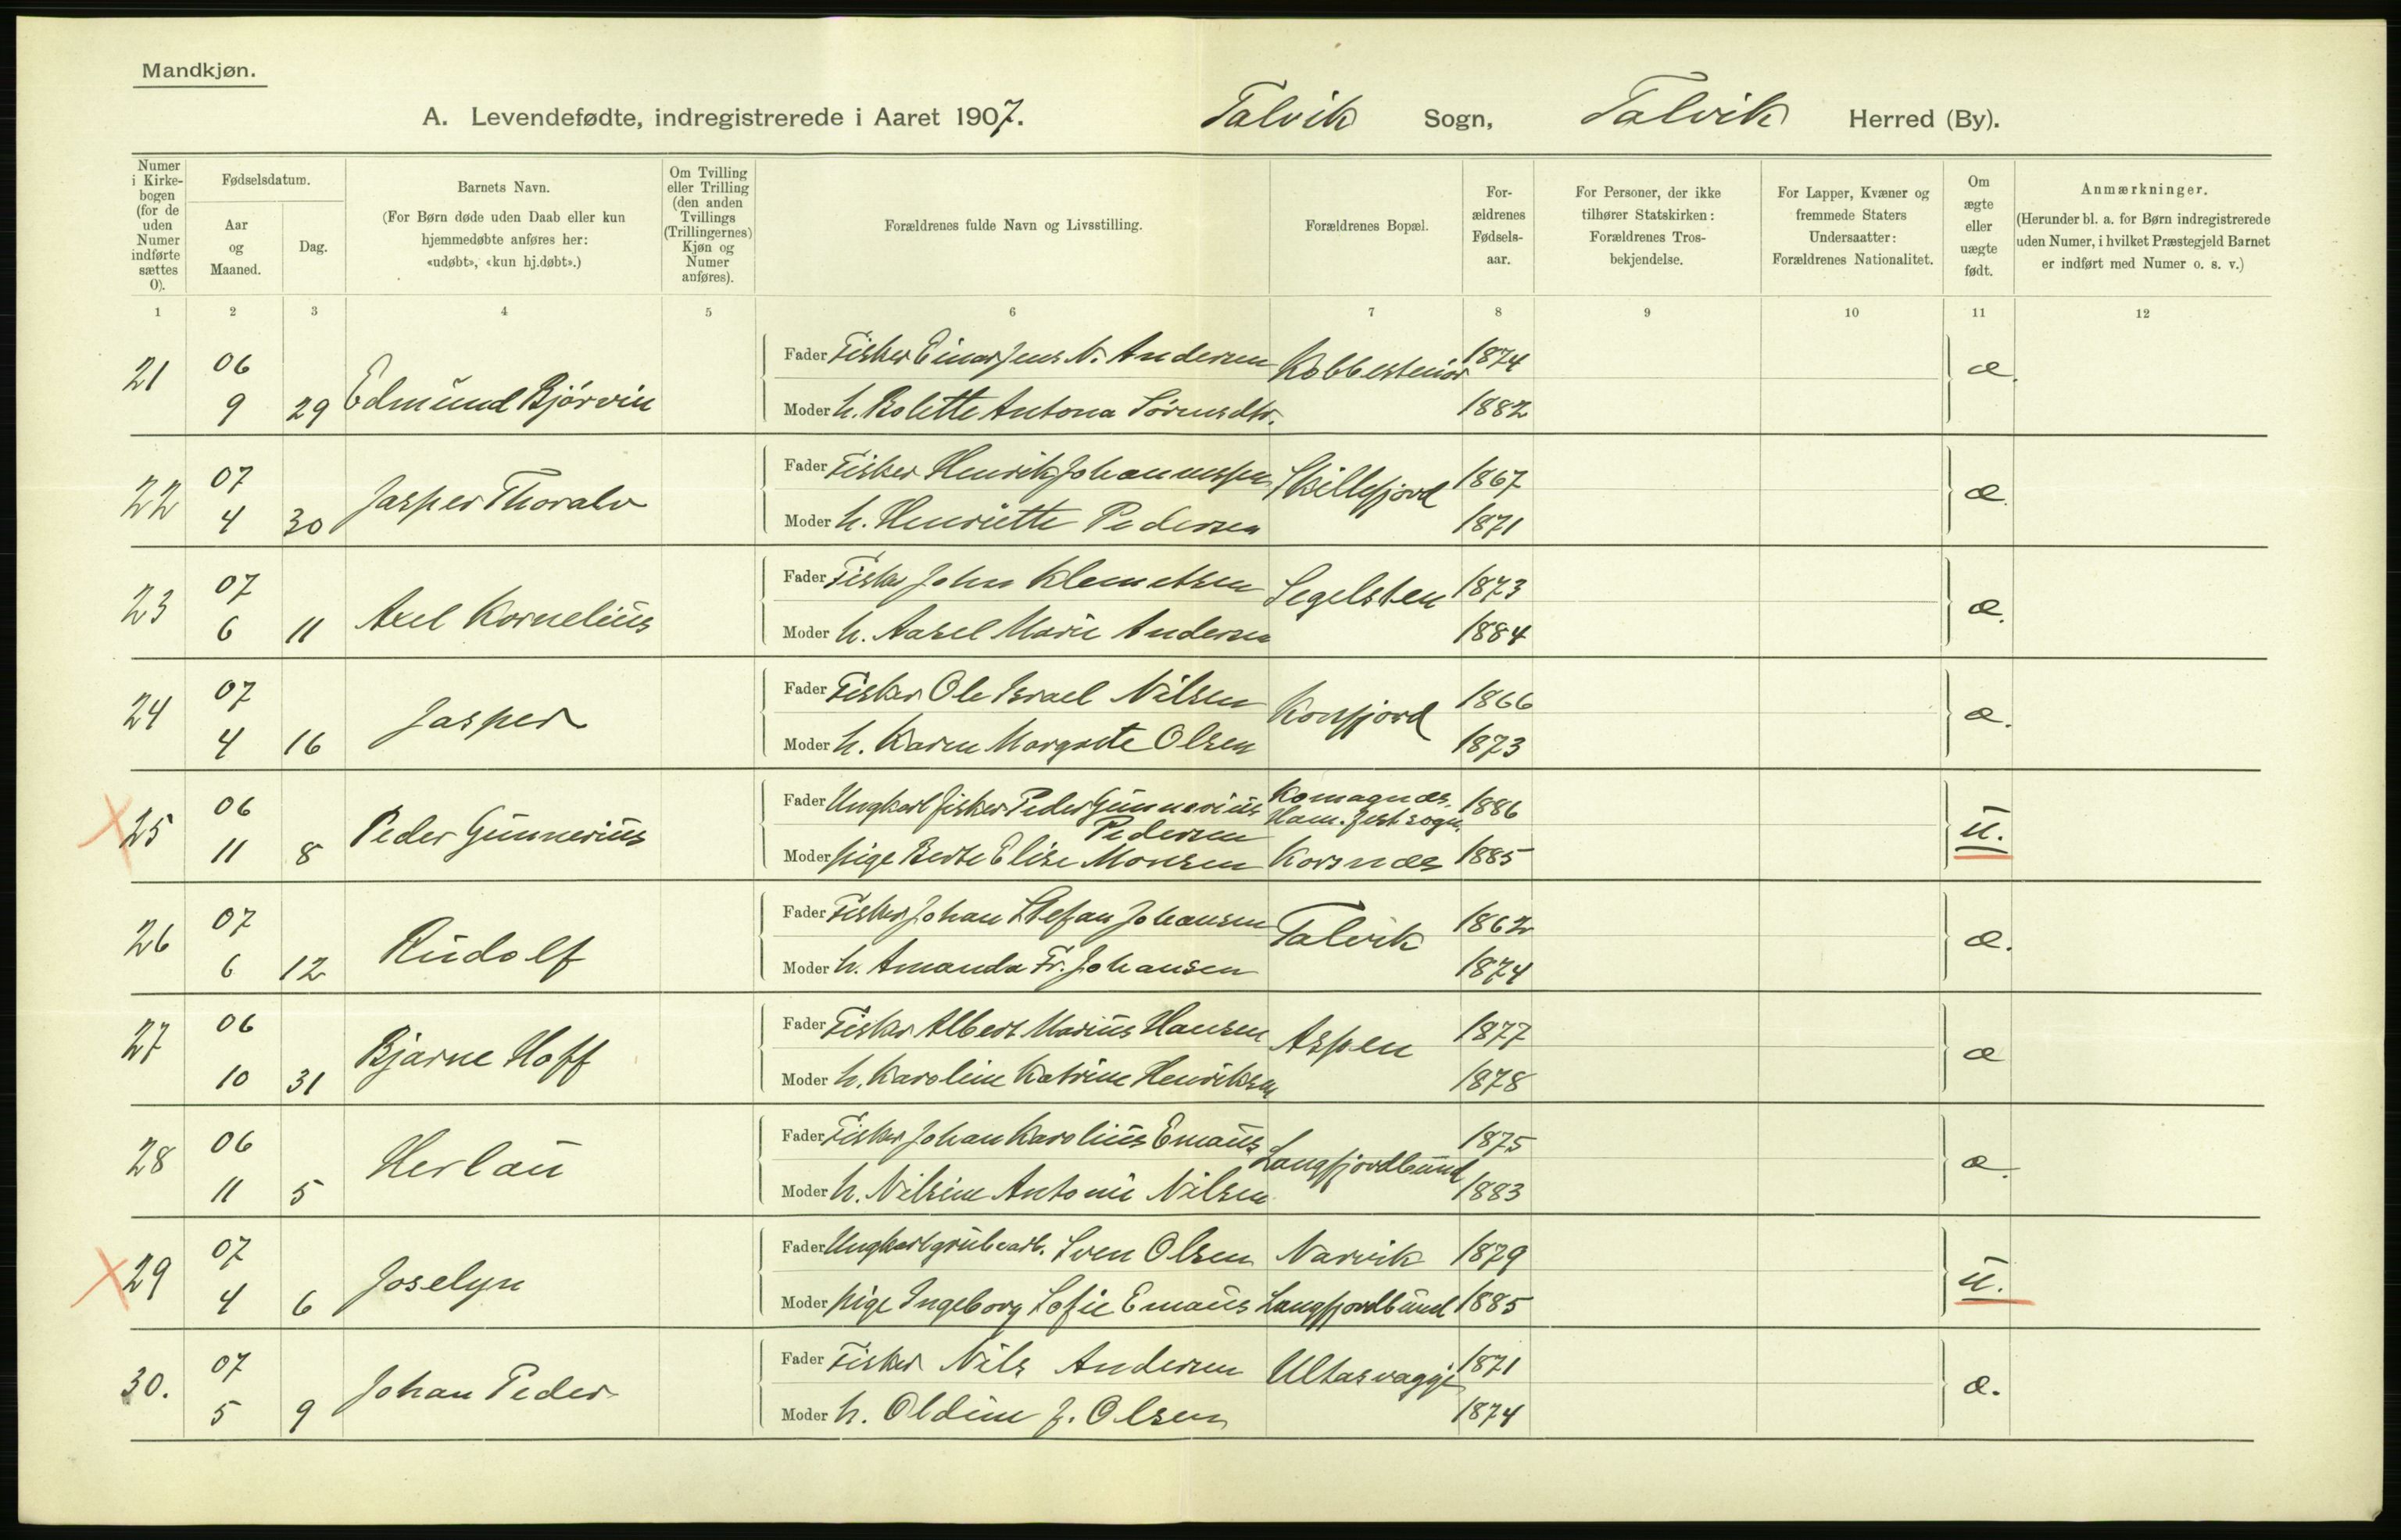 Mandkjøn.
A. Levendefødte, indregistrerede i Aaret 1907. Talvik Sogn, Talvik Herred (By).
Numer i Kirke-bogen (for de uden Numer indførte sættes 0).
Fødselsdatum.
Aar og Maaned.
Dag.
Barnets Navn.
(For Børn døde uden Daab eller kun hjemmedøbte anføres her: «udøbt», «kun hj.døbt».)
Om Tvilling eller Trilling (den anden Tvillings (Trillingernes) Kjøn og Numer anføres).
Forældrenes fulde Navn og Livsstilling.
Forældrenes Bopæl.
For-ældrenes Fødsels-aar.
For Personer, der ikke tilhører Statskirken: Forældrenes Tros-bekjendelse.
For Lapper, Kvæner og fremmede Staters Undersaatter: Forældrenes Nationalitet.
Om ægte eller uægte født.
Anmærkninger.
(Herunder bl. a. for Børn indregistrerede uden Numer, i hvilket Præstegjeld Barnet er indført med Numer o. s. v.)
1 2 3 4 5 6 7 8 9 10 11 12
21 06 Fader Fisker Einar Jens N. Andersen 1874 æ.
9 29 Edmund Bjørvin Moder h. Bolette Antona Sørensdtr. 1882
22 07 Jasper Thoralv Fader Fisker Henrik Johannessen Skillefjord 1867 æ.
4 30 Moder h. Henriette Pedersen 1871
23 07 Axel Kornelius Fader Fisker John Klemetsen Segelsten 1873 æ.
6 11 Moder h. Aasel Marie Andersen 1884
24 07 Jasper Fader Fisker Ole Israel Nilsen Korsfjord 1866 æ.
4 16 Moder h. Karen Margrete Olsen 1873
25 06 Peder Gunnerius Fader Ungkarl fisker Peder Gunnerius Pedersen Komagnæs, Ham.fest sogn. 1886 u.
11 8 Moder pige Berte Elise Monsen Korsnæs 1885
26 07 Rudolf Fader Fisker Johan Stefan Johansen Talvik 1862 æ.
6 12 Moder h. Amanda Fr. Johansen 1874
27 06 Bjarne Hoff Fader Fisker Albert Marius Hansen Aspen 1877 æ
10 31 Moder h. Karoline Katrine Henriksen 1878
28 06 Herlau Fader Fisker Johan Karolius Emaus Langfjordbund 1875 æ.
11 5 Moder h. Nilsine Antonie Nilsen 1883
29 07 Joselyn Fader Ungkarl grubearb. Sven Olsen Narvik 1879 u.
4 6 Moder pige Ingeborg Sofie Emaus Langfjordbund 1885
30. 07 Johan Peder Fader Fisker Nils Andersen Ultasvaggi 1871 æ.
5 9 Moder h. Oldine J. Olsen 1874